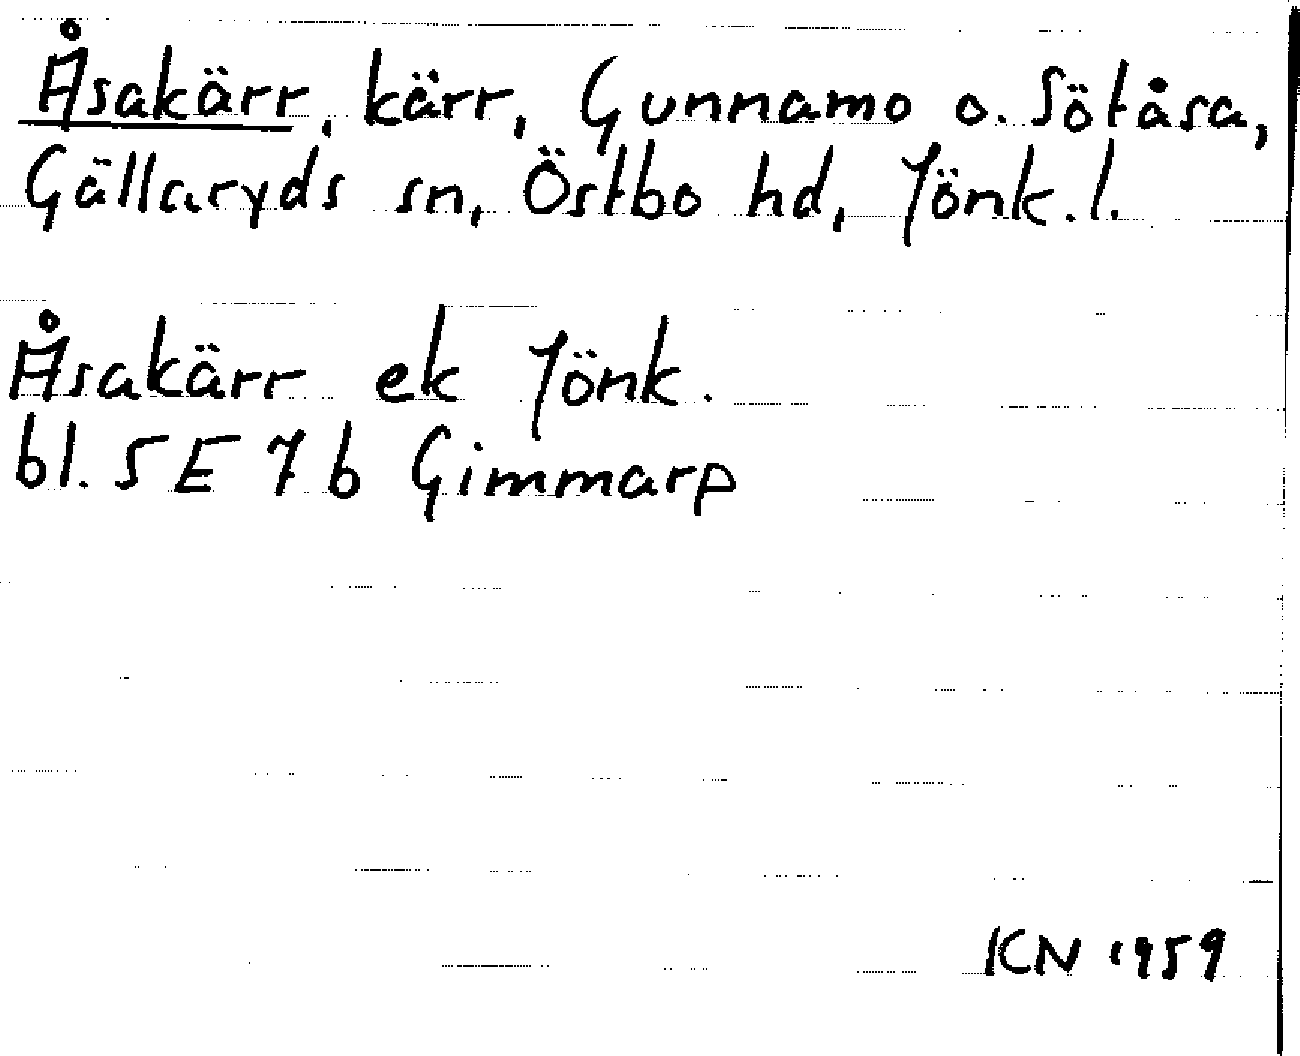 Åsakärr, kärr, Gunnamo o. Sötåsa,
Gällaryds sn, Östbo hd, Jönk. l.
Åsakärr ek Jönk.
bl. 5E 7b Gimmarp
KN 1959